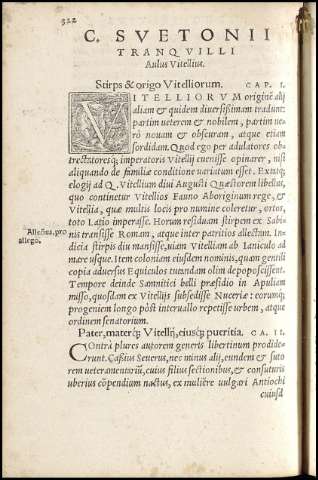 322
C. SVETONII
TRANQVILLI
Aulus Vitellius.
Stirps & origo Vitelliorum. CAP. I.
VITELLIORVM originē alij
aliam & quidem diuersissimam tradunt:
partim ueterem & nobilem, partim ue-
rò nouam & obscuram, atque etiam
sordidam. Quod ego per adulatores ob-
trectatoresq; imperatoris Vitellij euenisse opinarer, nisi
aliquando de familiæ conditione uariatum esset. Extatq;
elogij ad Q. Vitellium diui Augusti Quæstorem libellus,
quo continetur Vitellios Fauno Aboriginum rege, &
Vitellia, quæ multis locis pro numine coleretur, ortos,
toto Latio imperasse. Horum residuam stirpem ex Sabi-
nis transisse Romam, atque inter patritios allectam. In-
dicia stirpis diu mansisse, uiam Vitelliam ab Ianiculo ad
mare usque. Item coloniam eiusdem nominis, quam gentili
copia aduersus Equiculos tuendam olim depoposcissent.
Tempore deinde Samnitici belli præsidio in Apuliam
misso, quosdam ex Vitellijs subsedisse Nuceriæ: eorumq;
progeniem longo pòst interuallo repetisse urbem, atque
ordinem senatorium.
Allectus, pro
allego.
Pater, materq; Vitellij, eiusq; pueritia. CA. II.
Contrà plures autorem generis libertinum prodide-
runt. Caßius Seuerus, nec minus alij, eundem & suto
rem ueteramentariũ, cuius filius sectionibus, & consuturis
uberius cōpendium nactus, ex muliere uulgari Antiochi
cuiusd